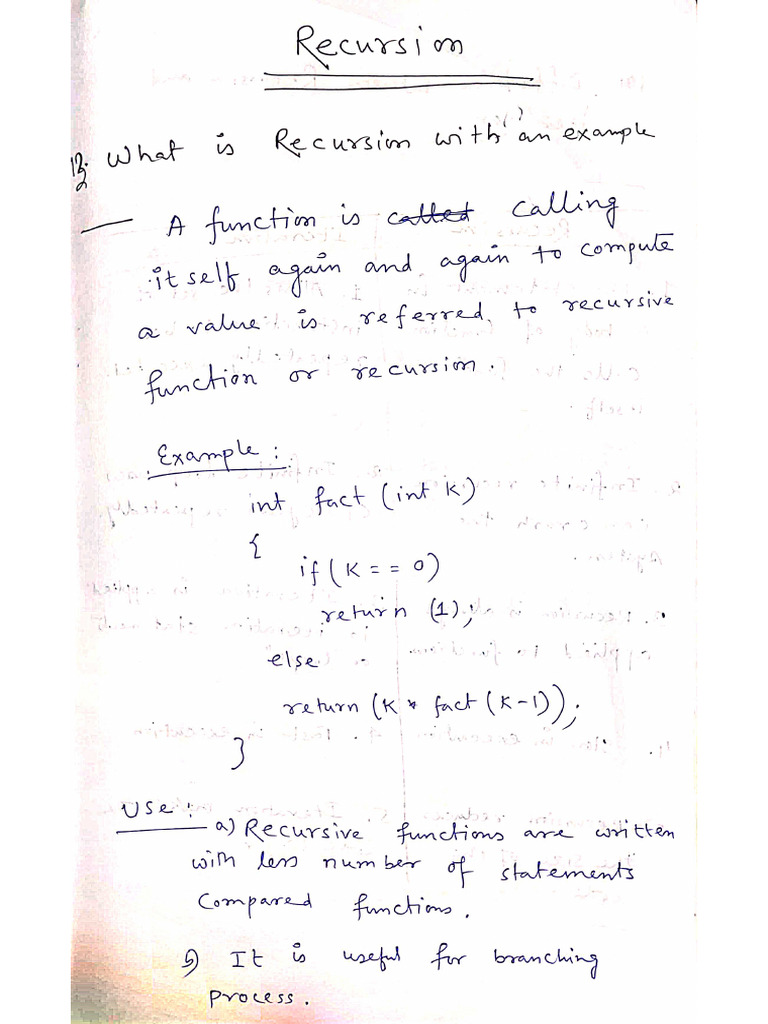 Recursion
What is Recursion with an example
— A function is called calling
itself again and again to compute
a value is referred to recursive
function or recursion.
Example :
int fact (int K)
{
if (K = = 0)
return (1);
else
return (K * fact (K-1));
}
Use :
a) Recursive functions are written
with less number of statements
Compared functions.
b) It is useful for branching
process.